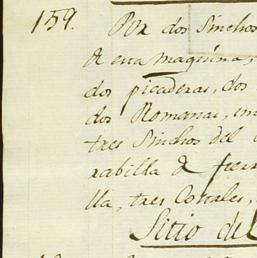 159. Por dos Sinchos
de essa maquina,
dos picaderas, dos
dos Romanas, un
tres Sinchos del
rabilla de fierr
lla, tres Corrales,
Sitio del